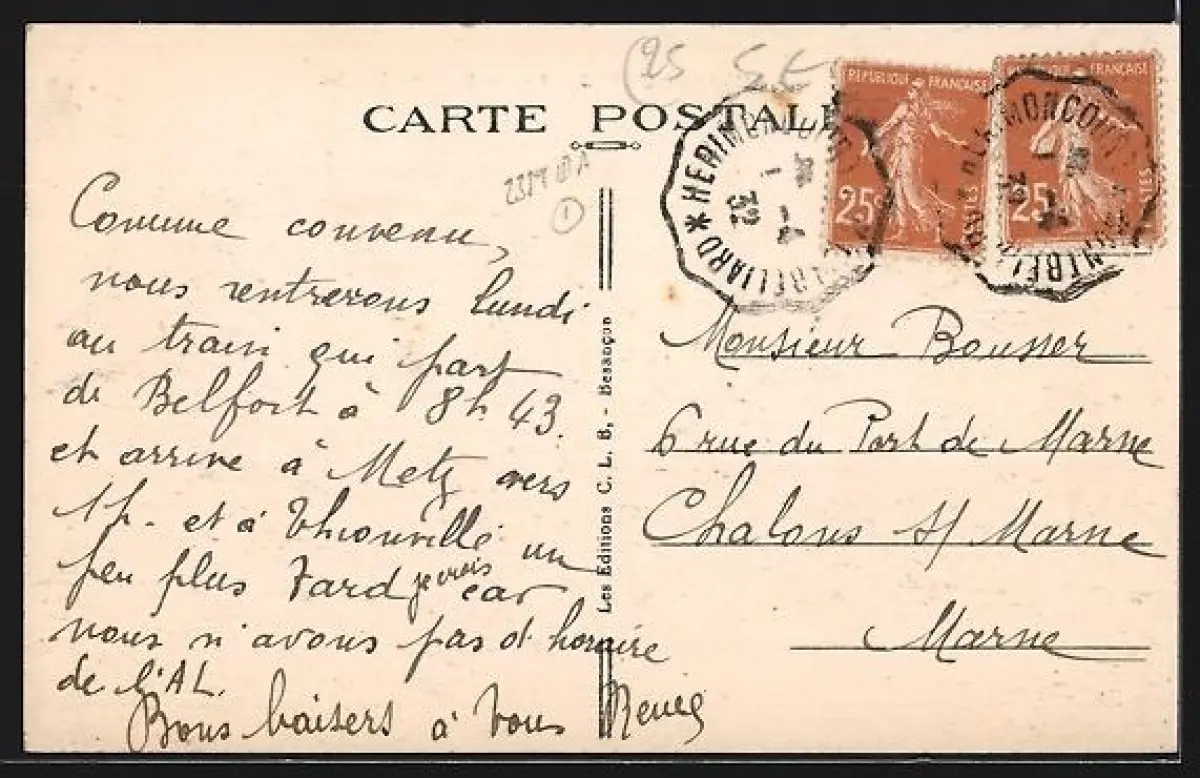 (25 S.E
CARTE POSTALE
RÉPUBLIQUE FRANÇAISE
25c
POSTES
RÉPUBLIQUE FRANÇAISE
25c
POSTES
HERIMONCOURT * MONTBELIARD
1-4
32
1
Comme convenu,
nous rentrerons lundi
au train qui part
de Belfort à 8h.43.
et arrive à Metz vers
1h. et à Thionville un
peu plus tard je crois car
nous n'avons pas d'horaire
de l'AL.
Bons baisers à vous
Les Editions C. L. B. - Besançon
Monsieur Bousser
6 rue du Port de Marne
Chalons s/ Marne
Marne